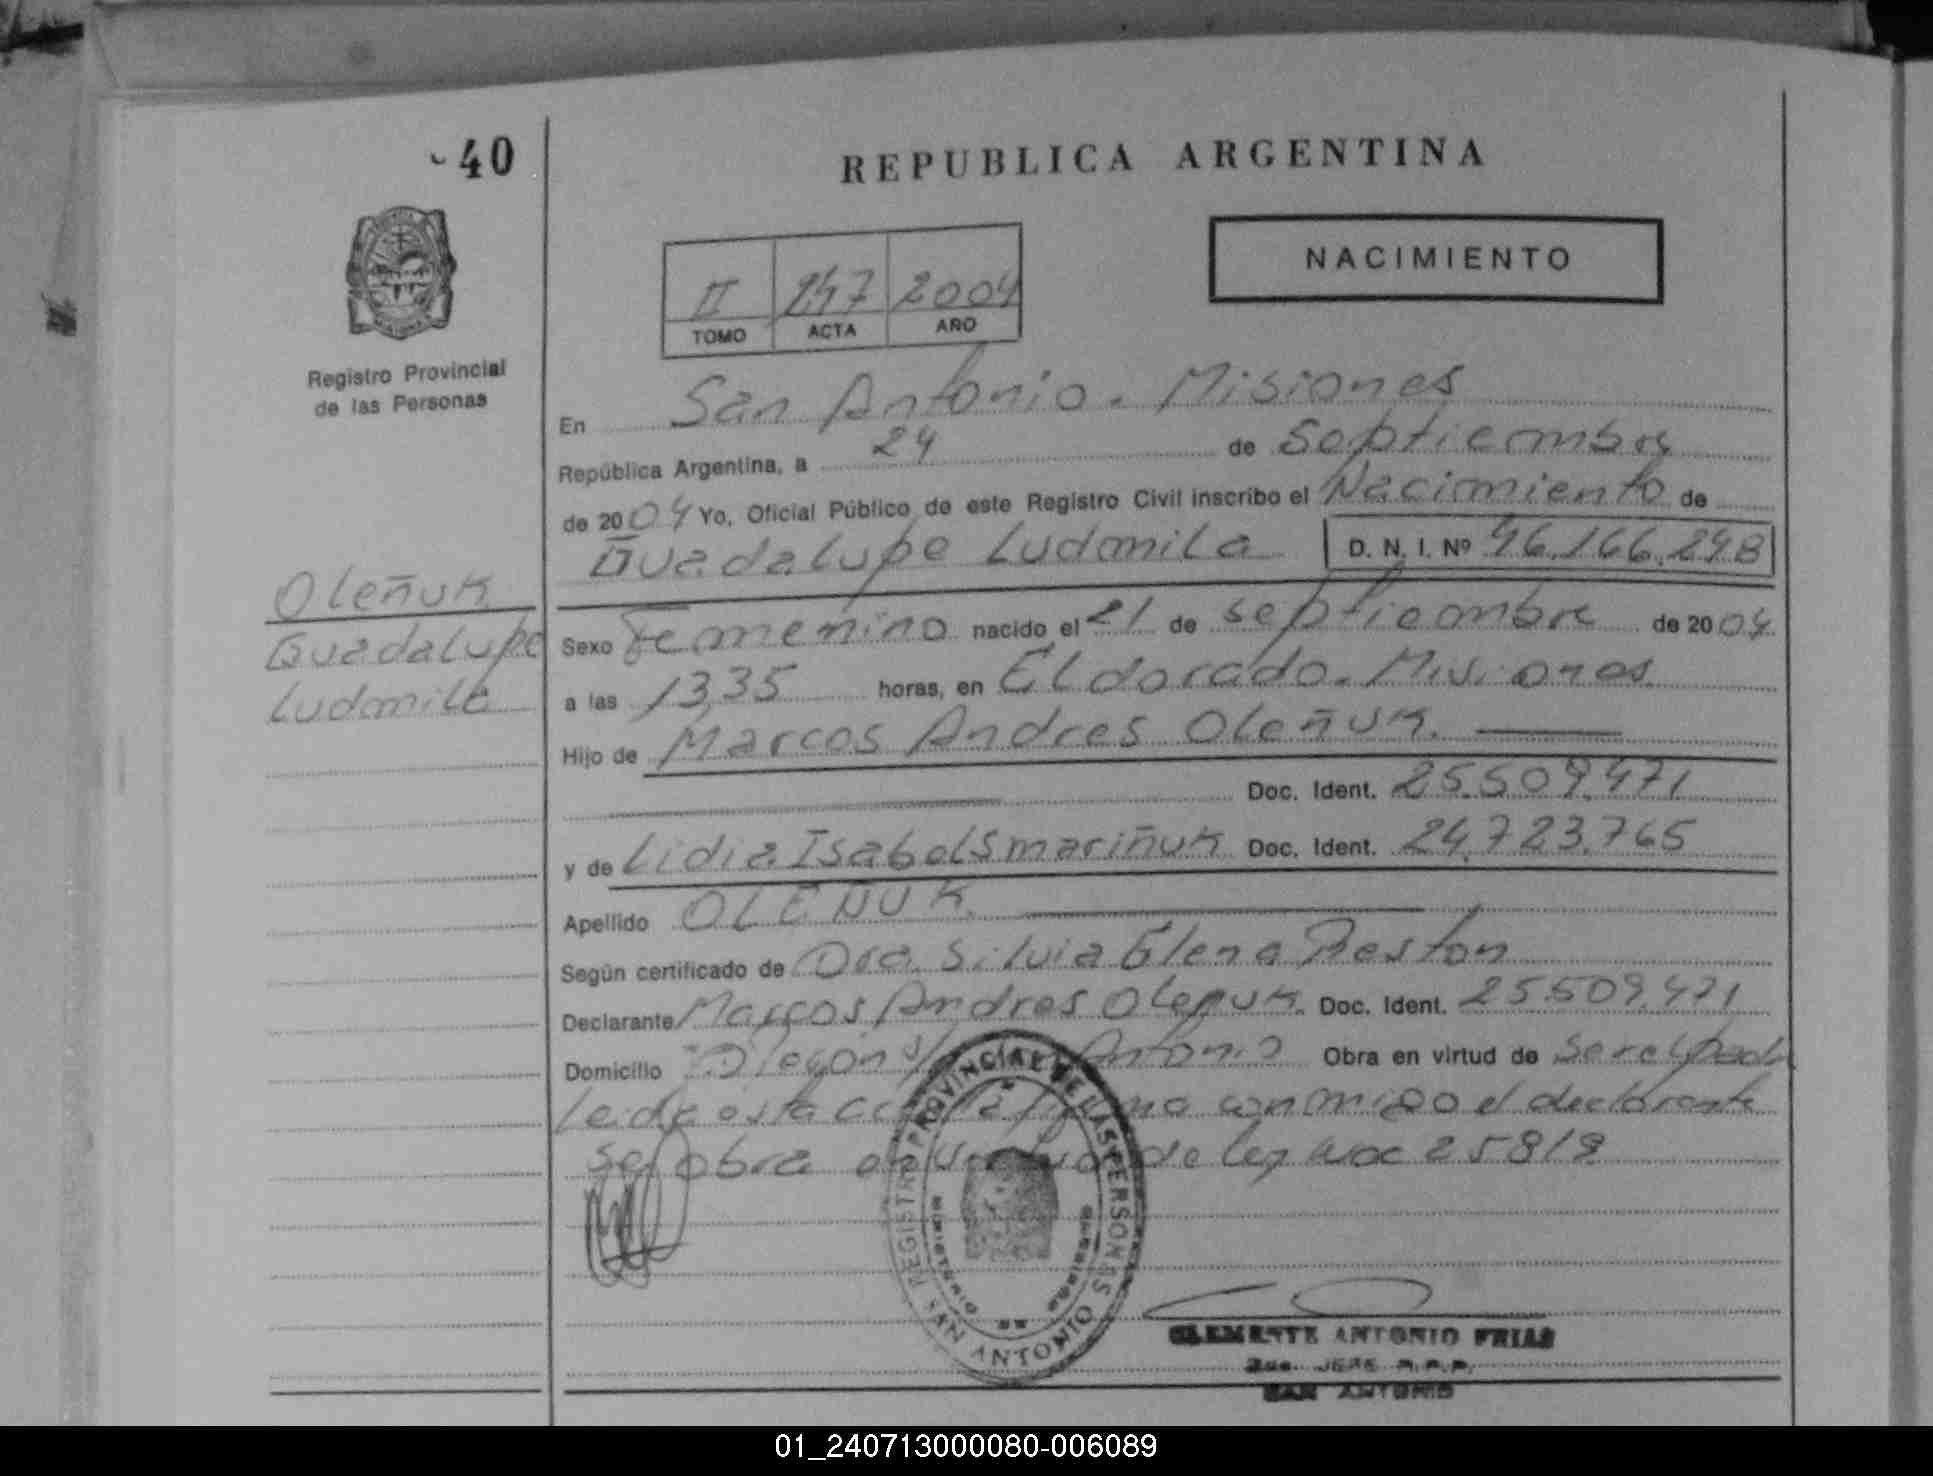 40
REPUBLICA ARGENTINA
NACIMIENTO
II 247 2004
TOMO ACTA AÑO
Registro Provincial
de las Personas
En San Antonio. Misiones
República Argentina, a 24 de Septiembre
de 2004 Yo, Oficial Público de este Registro Civil inscribo el Nacimiento de
Guadalupe Ludmila D. N. I. Nº 46.166.248
Oleñuk
Guadalupe
Ludmila
Sexo Femenino nacido el 21 de septiembre de 2004
a las 13,35 horas, en Eldorado. Misiones
Hijo de Marcos Andres Oleñuk.
Doc. Ident. 25.509.471
y de Lidia Isabel Smariñuk Doc. Ident. 24.723.765
Apellido OLEÑUK
Según certificado de Dra. Silvia Elena Reston
Declarante Marcos Andres Oleñuk. Doc. Ident. 25.509.471
Domicilio Antonio Obra en virtud de
leida esta conmigo el declarante
se obra en de ley 25818
REGISTRO PROVINCIAL DE LAS PERSONAS
MINISTERIO
SAN ANTONIO
CLEMENTE ANTONIO FRIAS
JEFE R.P.P.
SAN ANTONIO
01_240713000080-006089